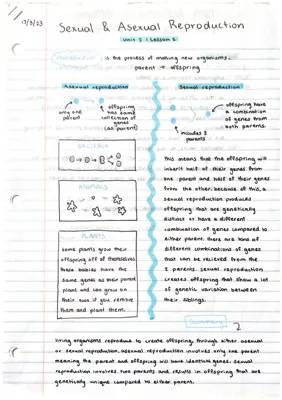 11/3/23
Sexual & Asexual Reproduction
Unit 2 | Lesson 2
is the process of making new organisms.
parent → offspring
Asexual reproduction
only one
parent
offspring
has same
collection of
genes
(as parent)
BACTERIA
ANIMALS
PLANTS
Some plants grow their
offspring off of themselves
these babies have the
same genes as their parent
plant and can grow on
their own if you remove
them and plant them.
Sexual reproduction
includes 2
parents
offspring have
a combination
of genes from
both parents.
this means that the offspring will
inherit half of their genes from
one parent and half of their genes
from the other. because of this, a
sexual reproduction produces
offspring that are genetically
distinct or have a different
combination of genes compared to
either parent. there are tons of
different combinations of genes
that can be recieved from the
2 parents. sexual reproduction
creates offspring that show a lot
of genetic variation between
their siblings.
Summary
2
living organisms reproduce to create offspring through either asexual
or sexual reproduction. asexual reproduction involves only one parent
meaning the parent and offspring will have identical genes. sexual
reproduction involves two parents and results in offspring that are
genetically unique compared to either parent.